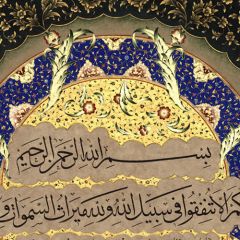 بسم الله الرحمن الرحيم
كم الا تنفقوا في سبيل الله ولله ميراث السموات و